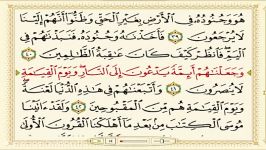 هُوَ وَجُنُودُهُ فِي الْأَرْضِ بِغَيْرِ الْحَقِّ وَظَنُّوا أَنَّهُمْ إِلَيْنَا
لَا يُرْجَعُونَ ٣٩ فَأَخَذْنَاهُ وَجُنُودَهُ فَنَبَذْنَاهُمْ فِي
الْيَمِّ فَانْظُرْ كَيْفَ كَانَ عَاقِبَةُ الظَّالِمِينَ ٤٠
وَجَعَلْنَاهُمْ أَئِمَّةً يَدْعُونَ إِلَى النَّارِ وَيَوْمَ الْقِيَامَةِ
لَا يُنْصَرُونَ ٤١ وَأَتْبَعْنَاهُمْ فِي هَٰذِهِ الدُّنْيَا لَعْنَةً
وَيَوْمَ الْقِيَامَةِ هُمْ مِنَ الْمَقْبُوحِينَ ٤٢ وَلَقَدْ آتَيْنَا
مُوسَى الْكِتَابَ مِنْ بَعْدِ مَا أَهْلَكْنَا الْقُرُونَ الْأُولَىٰ